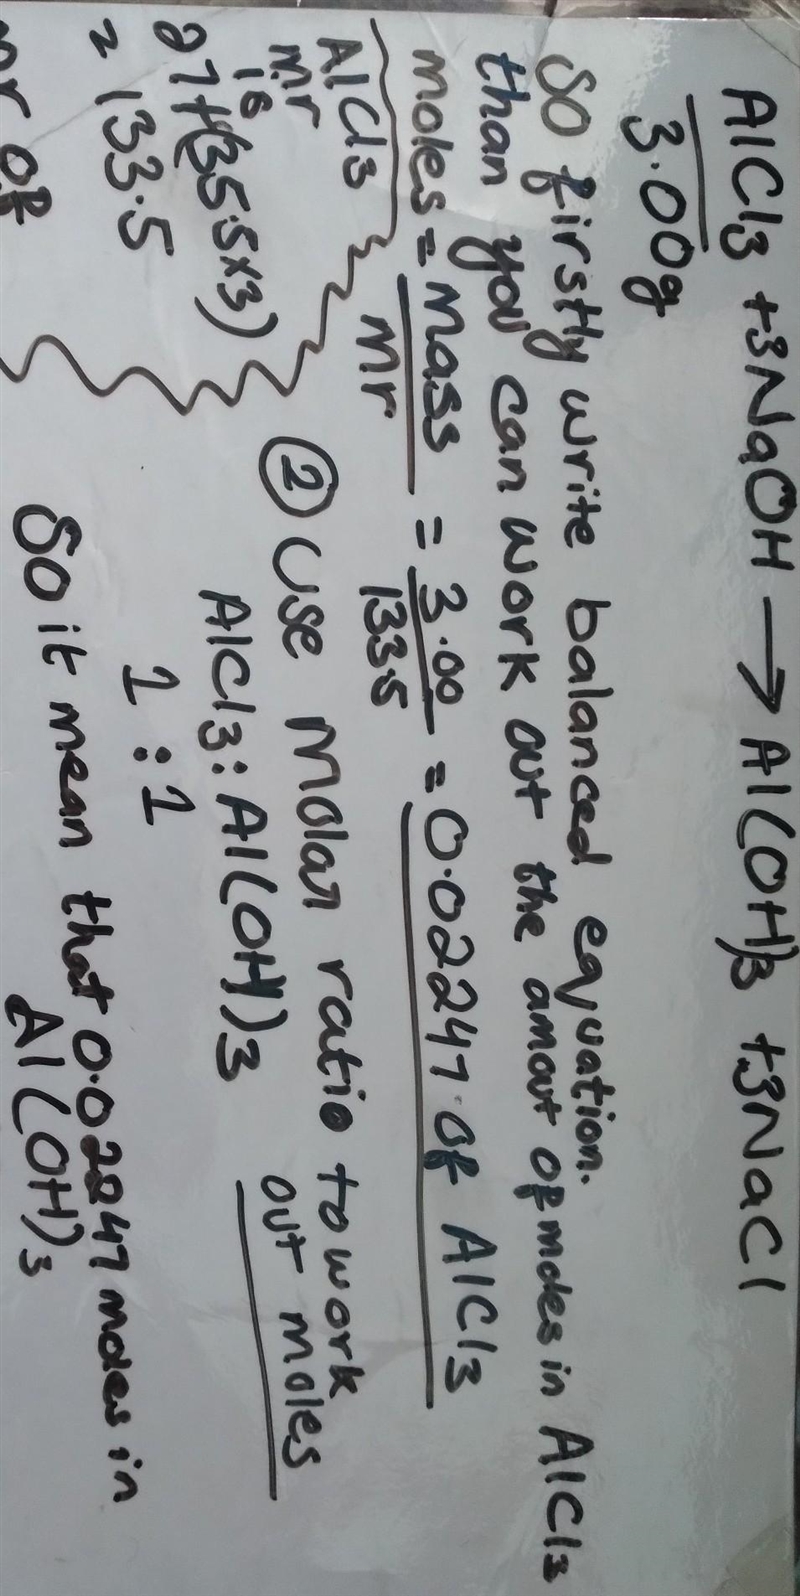 AlCl3 +3NaOH → Al(OH)3 +3NaCl
3.00g
So firstly write balanced equation.
than you can work out the amout of moles in AlCl3
moles = mass / mr = 3.00 / 133.5 = 0.02247 of AlCl3
AlCl3
mr
is
27+(35.5x3)
= 133.5
② Use molar ratio to work
out moles
AlCl3 : Al(OH)3
1 : 1
So it mean that 0.02247 moles in
Al(OH)3
mr of